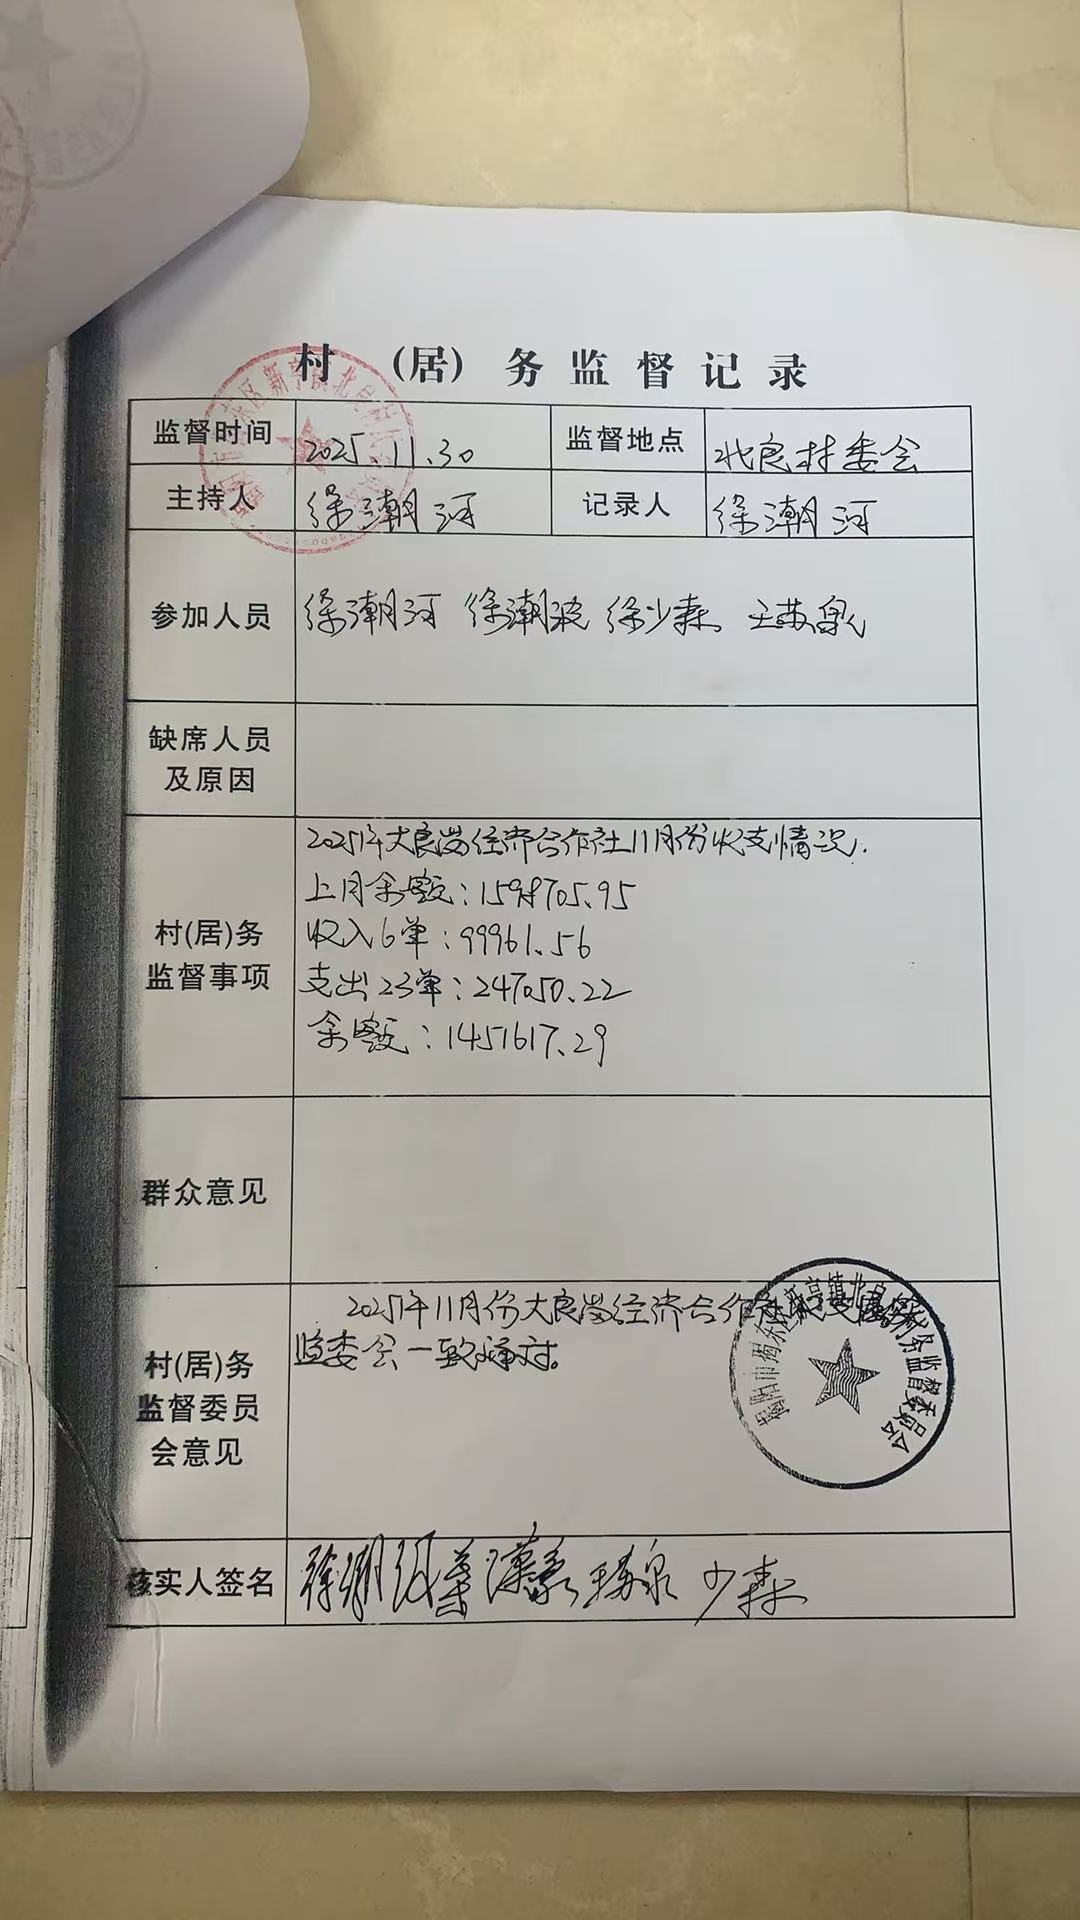 村 (居) 务监督记录
监督时间 2025.11.30 监督地点 北良村委会
主持人 徐潮河 记录人 徐潮河
参加人员 徐潮河 徐潮波 徐少森 王苏泉
缺席人员
及原因
2025年大良岗经济合作社11月份收支情况.
上月余额:1598705.95
村(居)务
监督事项
收入6单:99961.56
支出23单:247050.22
余额:1451617.29
群众意见
2025年11月份大良岗经济合作社收支情况
监委会一致通过。
村(居)务
监督委员
会意见
揭阳市揭东区新亨镇北良村务监督委员会
核实人签名 苏泉 少森